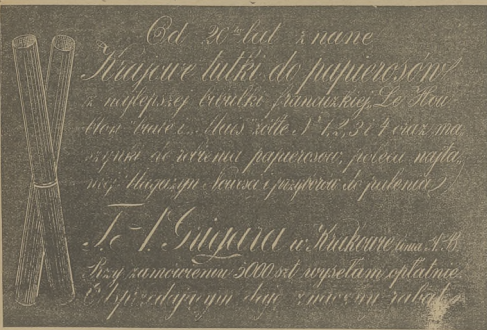 Od 20tu lat znane
Krajowe tutki do papierosów
z najlepszej bibułki francuzkiej Le Hou-
blon białe i Maïs żółte № 1, 2, 3 i 4 oraz ma-
szynki do robienia papierosów, poleca najta-
niej Magazyn Nowości i przyborów do palenia
Grigara w Krakowie linia A-B.
Przy zamówieniu 5000 szt wysełam opłatnie.
Odsprzedającym daję znaczny rabat